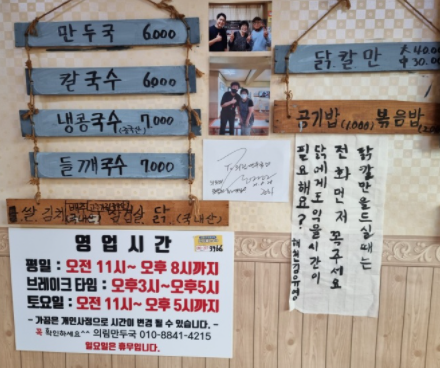 만두국 6.000
칼국수 6.000
냉콩국수 7000
들깨국수 7000
쌀, 김치
닭 (국내산)
닭칼만
大 40.0
中 30.00
공기밥 (1,000) 볶음밥
닭칼만을드실때는
전화먼저 꼭주세요
닭에게도 익을시간이
필요해요?
영업시간
평일 : 오전 11시~ 오후 8시까지
브레이크 타임 : 오후3시~오후5시
토요일 : 오전 11시~ 오후 5시까지
- 가끔은 개인사정으로 시간이 변경 될 수 있습니다. -
꼭 확인하세요^^ 의림만두국 010-8841-4215
일요일은 휴무입니다.